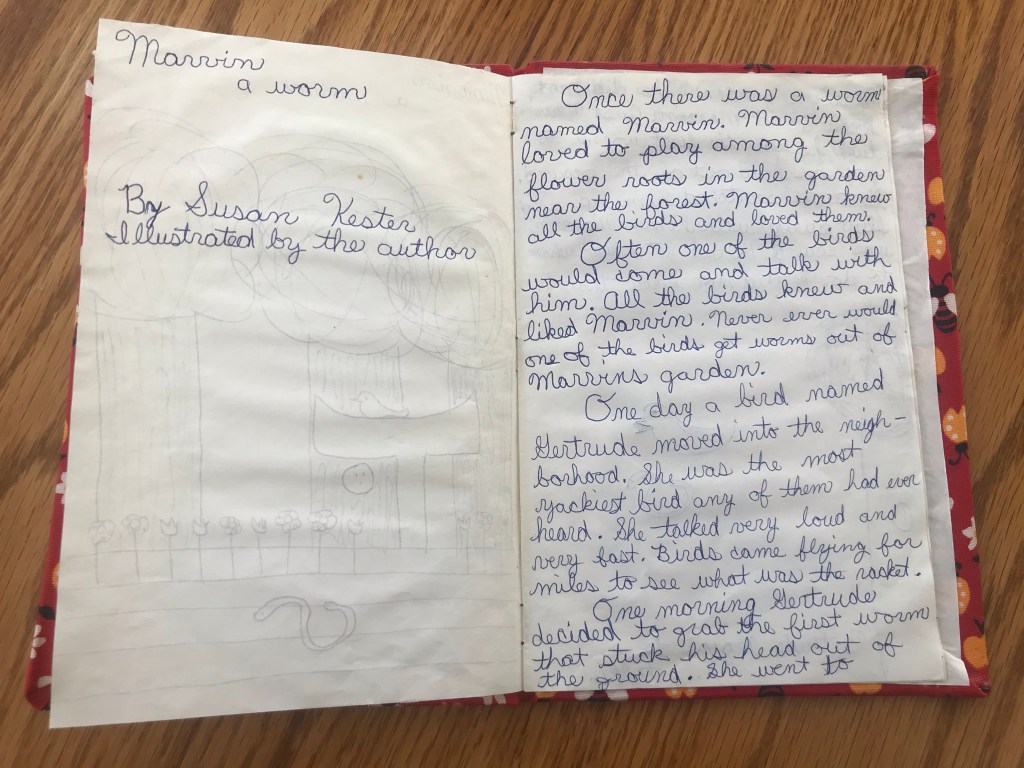 Marvin
a worm
By Susan Kester
Illustrated by the author
Once there was a worm
named Marvin. Marvin
loved to play among the
flower roots in the garden
near the forest. Marvin knew
all the birds and loved them.
Often one of the birds
would come and talk with
him. All the birds knew and
liked Marvin. Never ever would
one of the birds get worms out of
Marvins garden.
One day a bird named
Gertrude moved into the neigh-
borhood. She was the most
yackiest bird any of them had ever
heard. She talked very loud and
very fast. Birds came flying for
miles to see what was the racket.
One morning Gertrude
decided to grab the first worm
that stuck his head out of
the ground. She went to